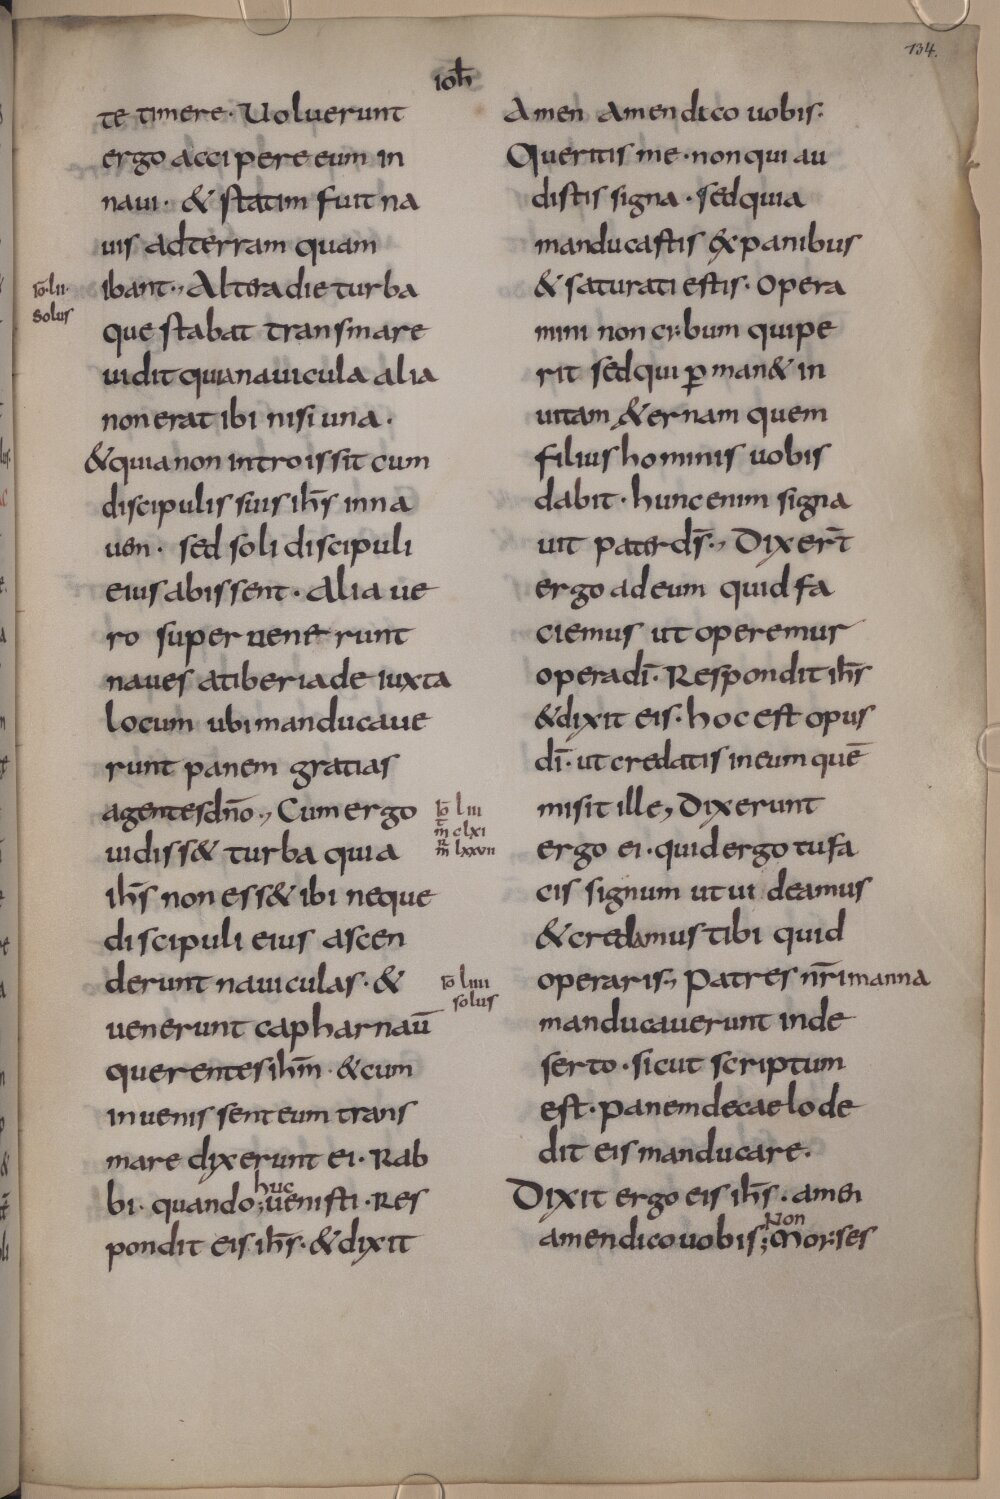 134.
ioh̄
te timere. Uoluerunt
ergo accipere eum in
naui. & statim fuit na
uis ad terram quam
ibant., Altera die turba
que stabat trans mare
uidit quia nauicula alia
non erat ibi nisi una.
& quia non introissit cum
discipulis suis ih̄s in na
uen. sed soli discipuli
eius abissent. Alia ue
ro super uenerunt
naues a tiberiade iuxta
locum ubi manducaue
runt panem gratias
agentes dn̄o., Cum ergo
uidiss& turba quia
ih̄s non ess& ibi neque
discipuli eius ascen
derunt nauiculas. &
uenerunt capharnaū
querentes ih̄m. & cum
inuenissent eum trans
mare dixerunt ei. Rab
bi. quando; huc uenisti. Res
pondit eis ih̄s. & dixit
iō. lii.
solus
iō liii
m̄ clxi
m̄ lxxvii
iō liiii
solus
Amen amen dico uobis.
Queritis me. non qui au
distis signa. sed quia
manducastis ex panibus
& saturati estis. Opera
mini non cibum qui pe
rit sed qui ꝑman& in
uitam &ernam quem
filius hominis uobis
dabit. hunc enim signa
uit pater ds̄., Dixer̄t
ergo ad eum quid fa
ciemus ut operemur
opera dī. Respondit ih̄s
& dixit eis. hoc est opus
dī. ut credatis in eum quē
misit ille, Dixerunt
ergo ei. quid ergo tu fa
cis signum ut ui deamus
& credamus tibi quid
operaris., Patres nr̄i manna
manducauerunt in de
serto. sicut scriptum
est. panem de caelo de
dit eis manducare.
Dixit ergo eis ih̄s. amen
amen dico uobis; Non Moises